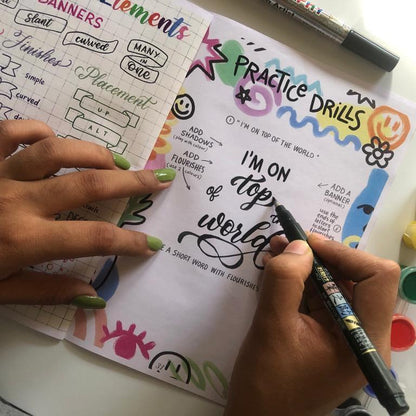 Elements
BANNERS
slant
curved
MANY
in
One
Finishes
simple
curved
Placement
UP
ALT
PRACTICE DRILLS
① "I'M ON TOP OF THE WORLD"
ADD
SHADOWS
ADD
FLOURISHES
I'M ON
Top
of
world
ADD A
BANNER
use the
ends of
letters
A SHORT WORD WITH FLOURISHES